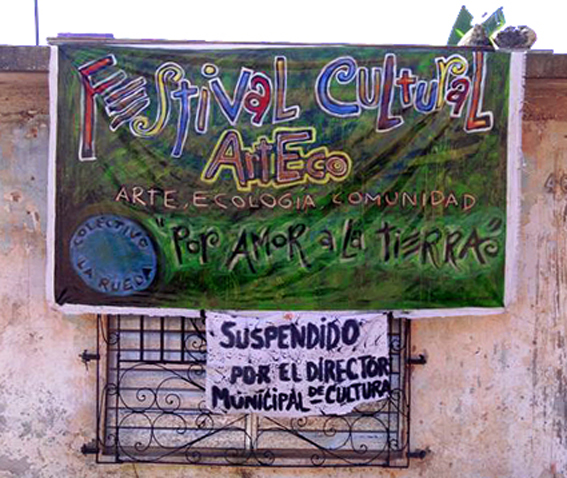 Festival Cultural
ArtEco
ARTE, ECOLOGIA COMUNIDAD
"POR AMOR a La TIERRA"
COLECTIVO
LA RUEDA
SUSPENDIDO
POR EL DIRECTOR
MUNICIPAL DE CULTURA